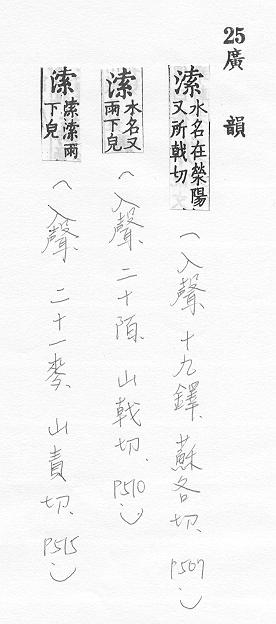 25廣韻
溹水名在滎陽又所戟切（入聲、十九鐸、蘇各切、P507）
溹水名又兩下皃（入聲、二十陌、山戟切、P510）
溹溹溹兩下皃（入聲、二十一麥、山責切、P515）